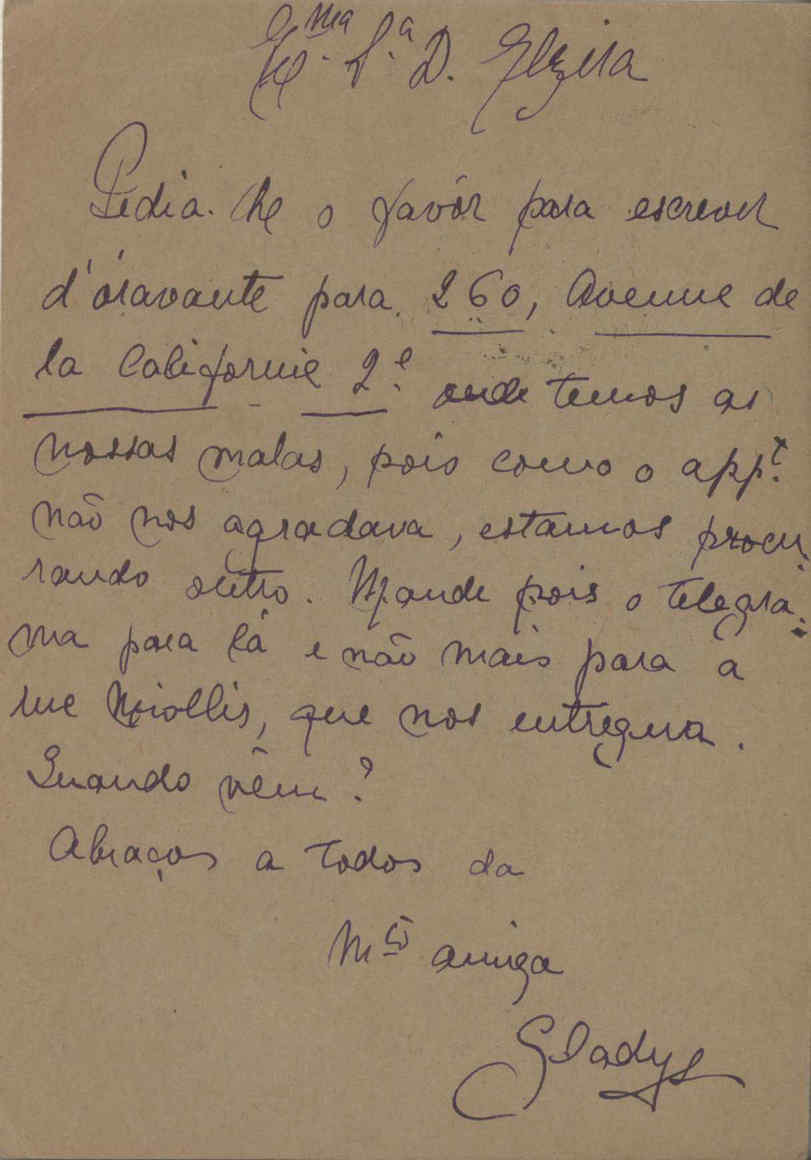 Exma Sra D. Elzira
Pedia-lhe o favôr para escrever
d'óravante para 260, Avenue de
la Californie 2e. onde temos as
nossas malas, pois como o appt.
não nos agradava, estamos procu-
rando outro. Mande pois o telegra-
ma para lá e não mais para a
rue Miollis, que nos entregua.
Quando vêm?
Abraços a todos da
Mto amiga
Gladys